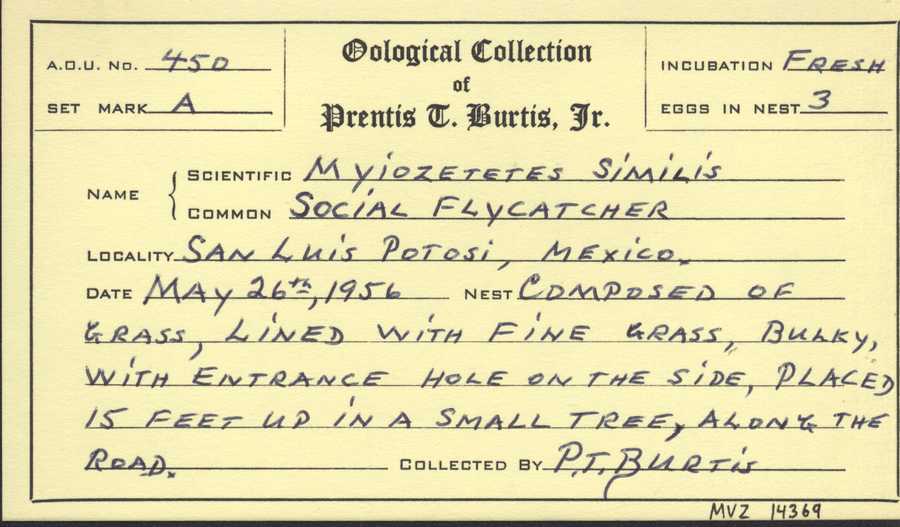 A.O.U. No. 450
SET MARK A
Oological Collection
of
Prentis T. Burtis, Jr.
INCUBATION FRESH
EGGS IN NEST 3
NAME
SCIENTIFIC MYIOZETETES SIMILIS
COMMON SOCIAL FLYCATCHER
LOCALITY SAN LUIS POTOSI, MEXICO.
DATE MAY 26th, 1956 NEST COMPOSED OF
GRASS, LINED WITH FINE GRASS, BULKY,
WITH ENTRANCE HOLE ON THE SIDE, PLACED
15 FEET UP IN A SMALL TREE, ALONG THE
ROAD. COLLECTED BY P.T. BURTIS
MVZ 14369